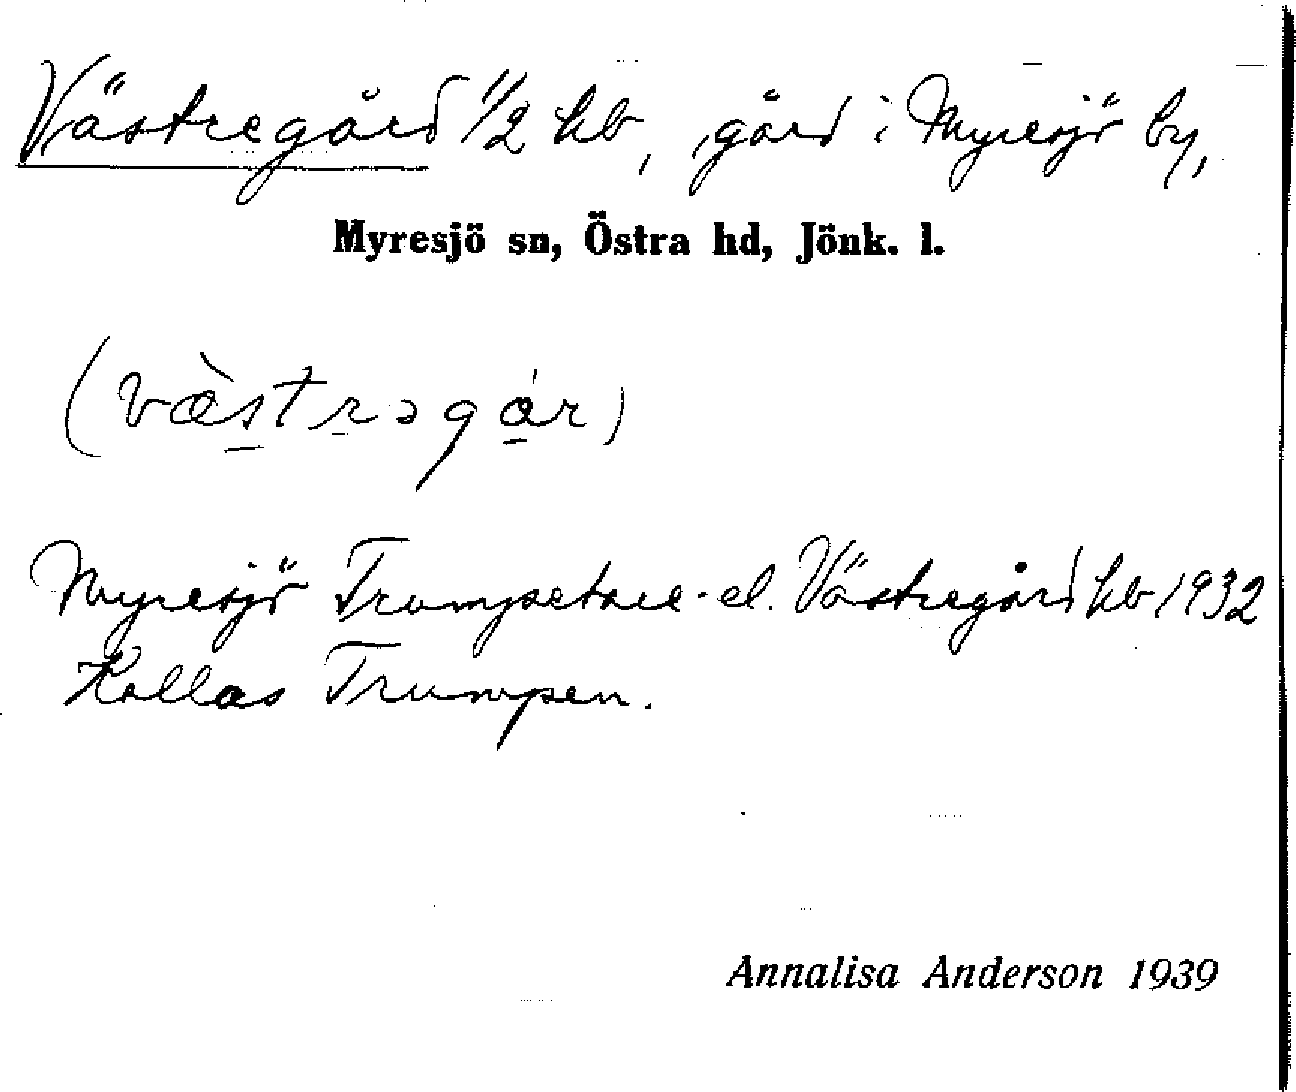 Västregård 1/2 hb, gård i Myresjö by,
Myresjö sn, Östra hd, Jönk. l.
(væ̀strəgár)
Myresjö Trumpetare- el. Västregård hb 1932
Kallas Trumpen.
Annalisa Anderson 1939